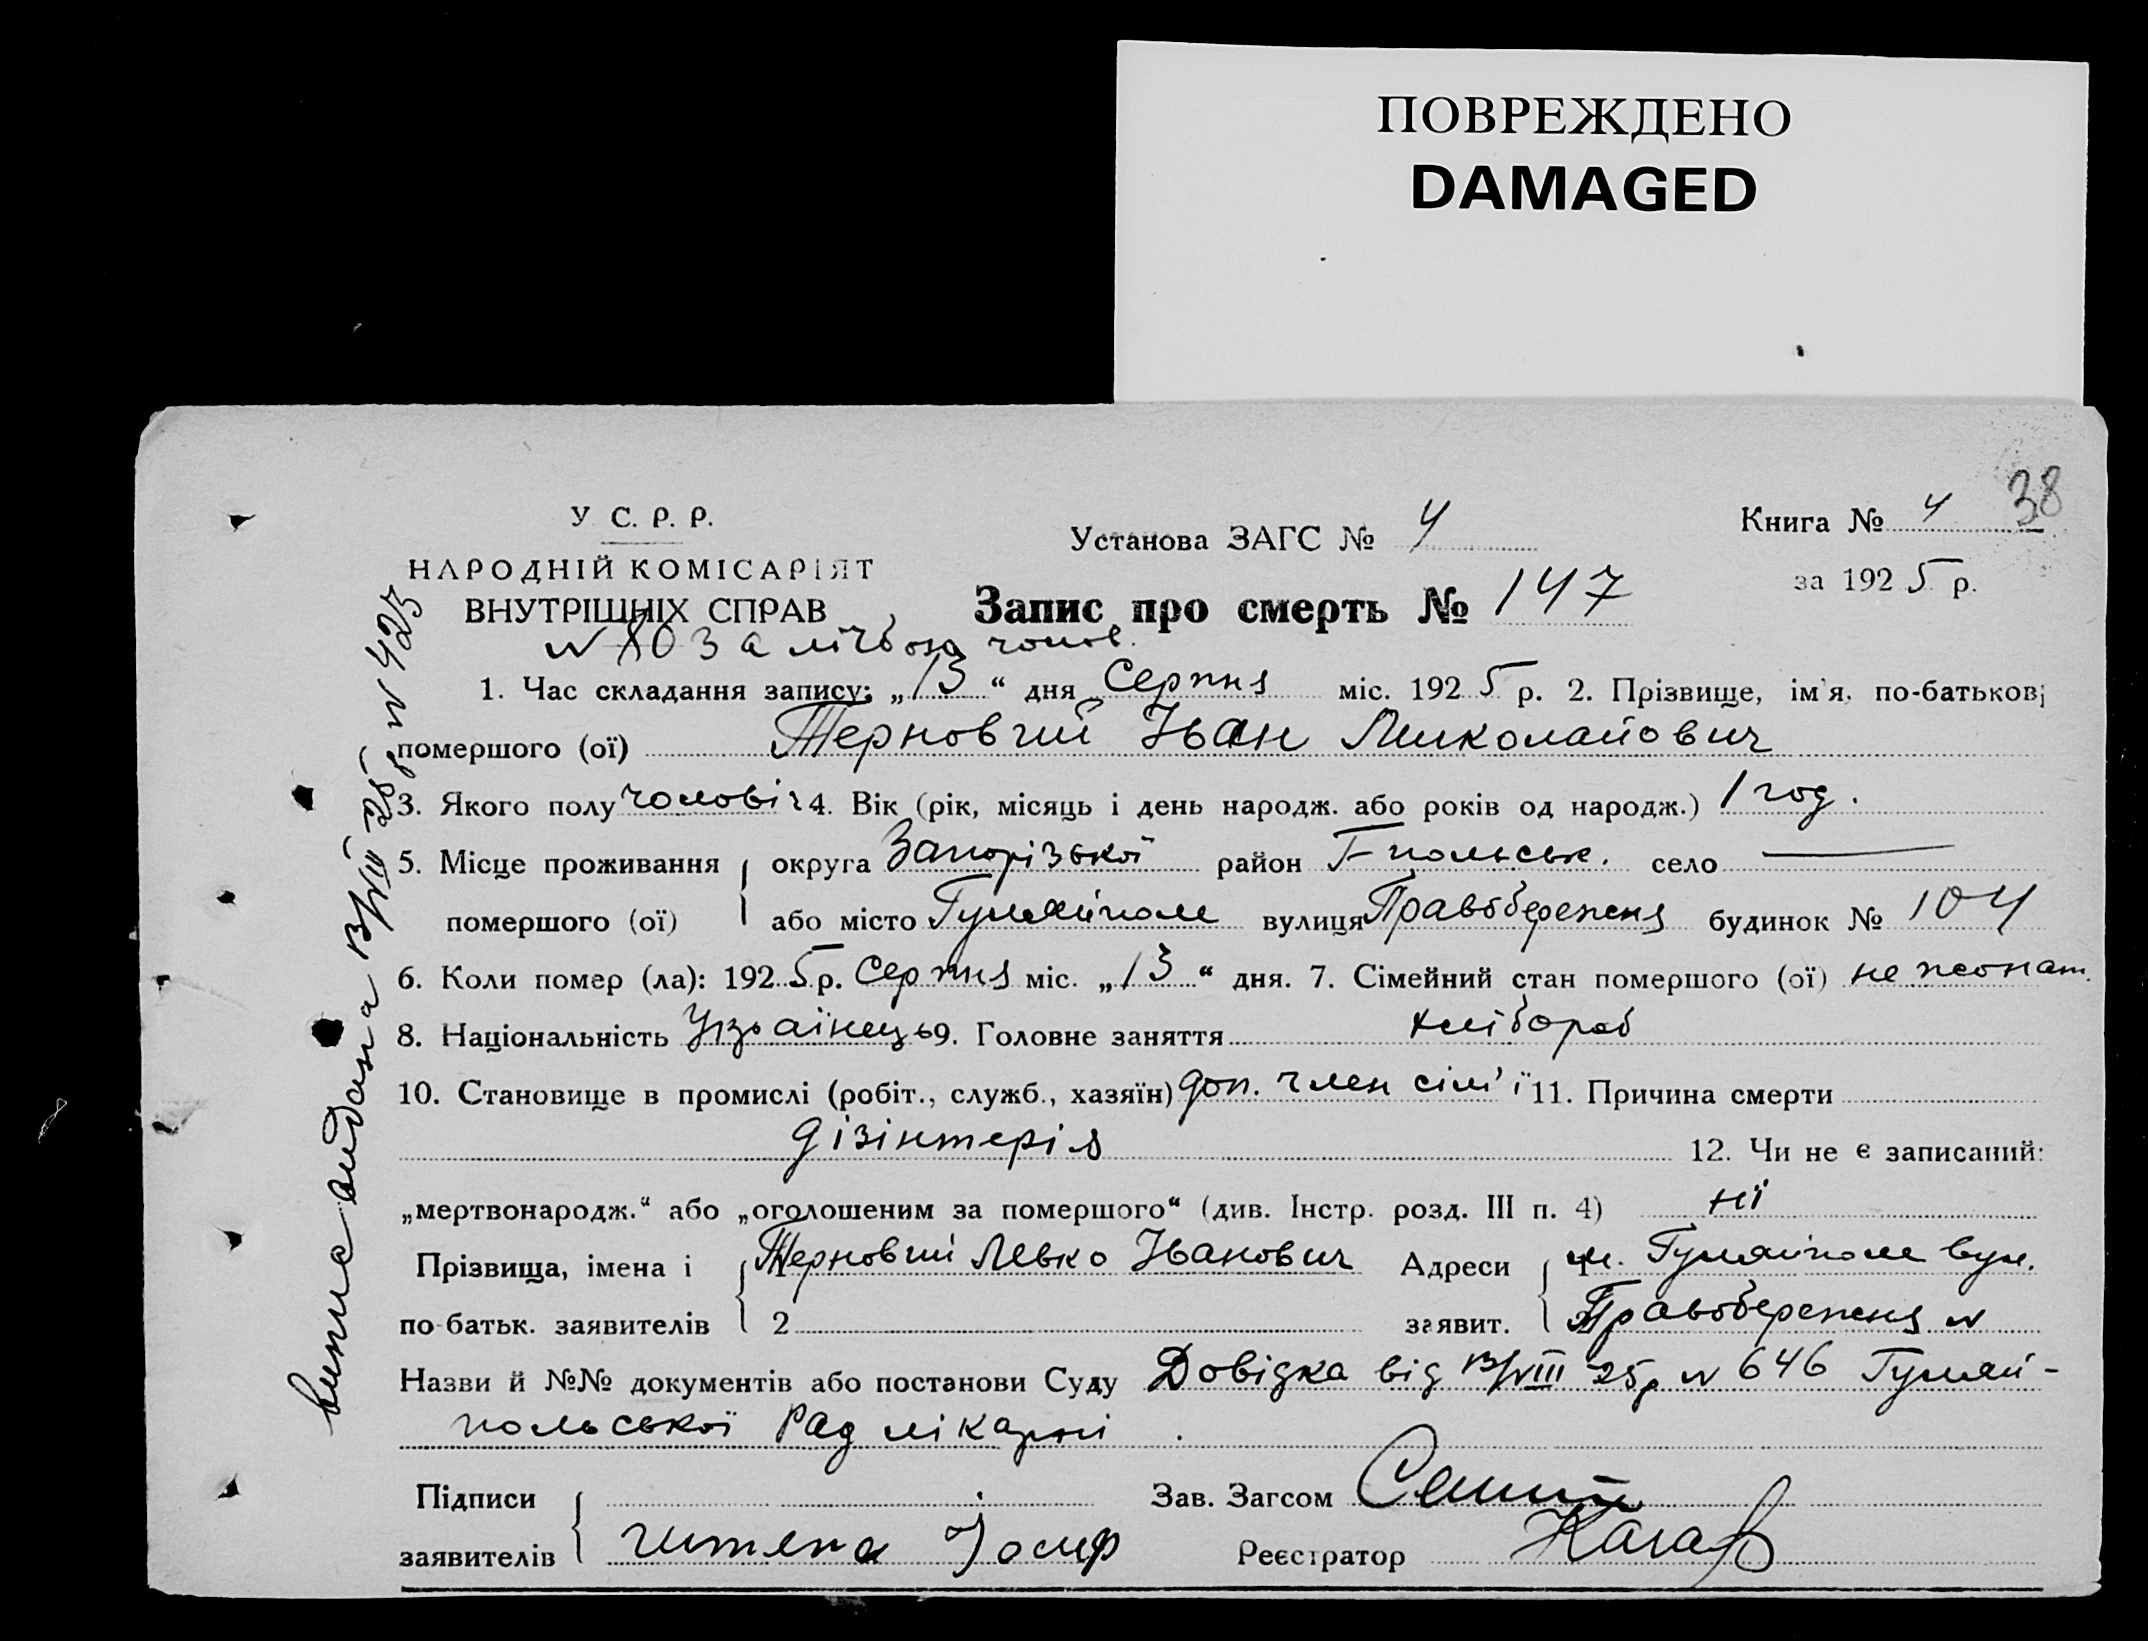 ПОВРЕЖДЕНО
DAMAGED
38
У С. Р. Р.
НАРОДНІЙ КОМІСАРІЯТ
ВНУТРІШНІХ СПРАВ
Установа ЗАГС № 4
Книга № 4
за 1925 р.
Запис про смерть № 147
№ 80 За лічбою чолов.
1. Час складання запису: „13“ дня Серпня міс. 1925 р. 2. Прізвище, ім'я, по-батькові
помершого (ої) Терновий Іван Миколайович
3. Якого полу чоловіч 4. Вік (рік, місяць і день народж. або років од народж.) 1 год.
5. Місце проживання округа Запорізької район Г-польськ. село —
помершого (ої) або місто Гуляйполе вулиця Правобережня будинок № 104
6. Коли помер (ла): 1925 р. Серпня міс. „13“ дня. 7. Сімейний стан помершого (ої) не жонат.
8. Національність Українець 9. Головне заняття хлібороб
10. Становище в промислі (робіт., служб., хазяїн) доп. член сім'ї 11. Причина смерти
дізінтерія 12. Чи не є записаний:
„мертвонародж.“ або „оголошеним за помершого“ (див. Інстр. розд. III п. 4) ні
Прізвища, імена і Терновий Левко Іванович Адреси м. Гуляйполе вул.
по-батьк. заявителів 2 заявит. Правобережня №
Назви й №№ документів або постанови Суду Довідка від 13/VIII 25р № 646 Гуляй-
польської Рад лікарні.
Підписи Зав. Загсом
заявителів Реєстратор
витяг видана 13/VIII 25р № 423